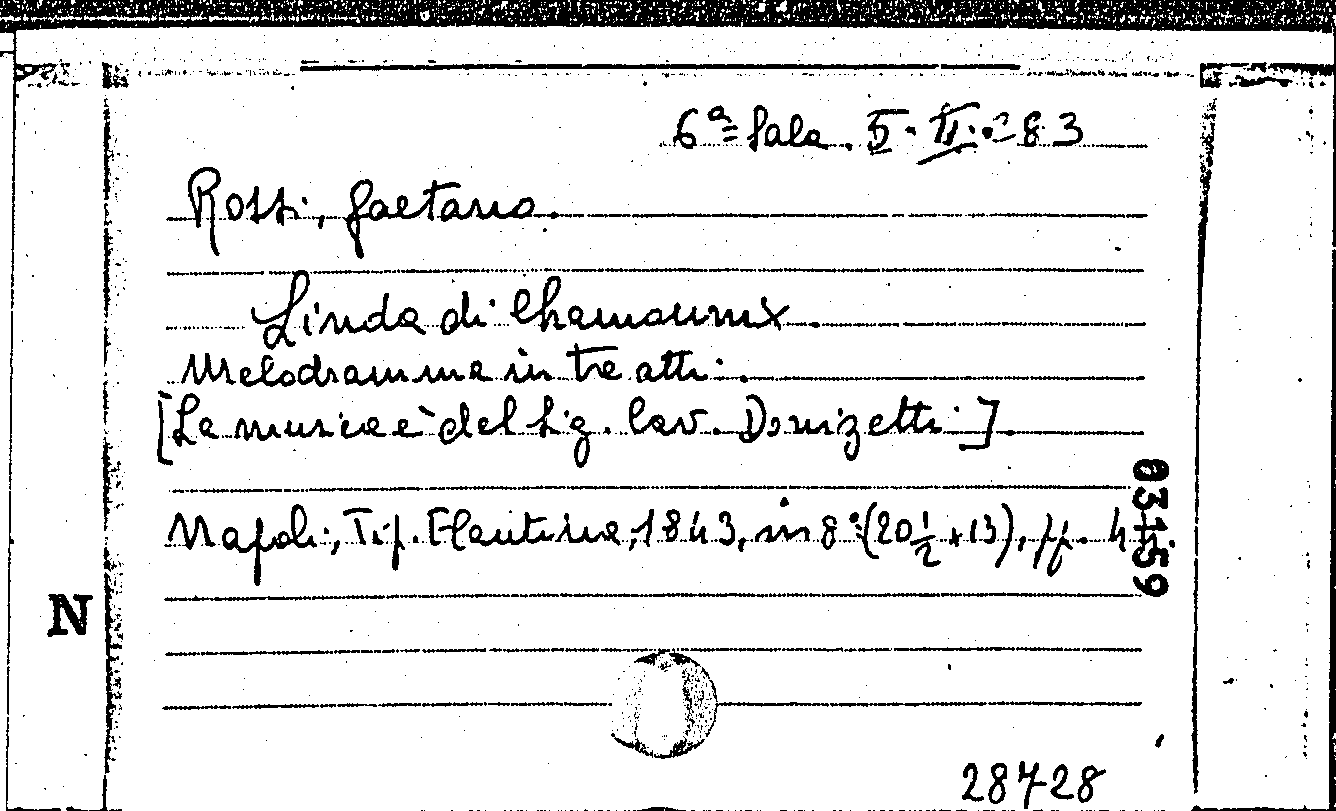 6ª Sala. 5. II. 83
Rossi, Gaetano.
Linda di Chamounix.
Melodramma in tre atti.
[La musica è del Sig. Cav. Donizetti].
Napoli, Tip. Flautina, 1843, in 8° (20½ x 13), pp.
03159
N
28728